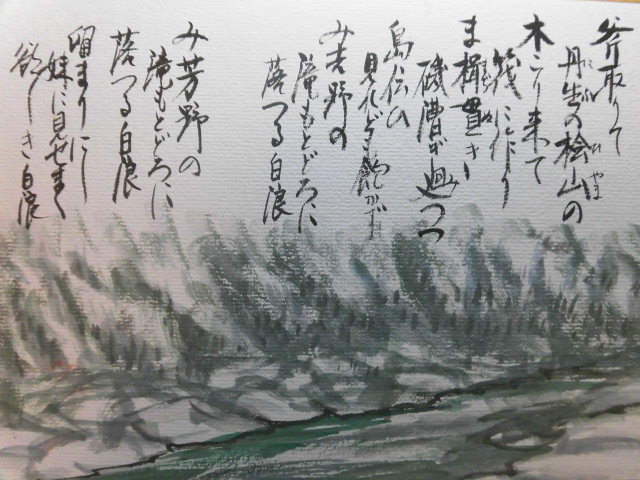 斧取りて
丹生の桧山の
木こり来て
筏に作り
ま楫貫き
磯漕ぎ廻つつ
島伝ひ
見れども飽かず
み吉野の
滝もとどろに
落つる白浪
み芳野の
滝もとどろに
落つる白浪
留まりにし
妹に見せまく
欲しき白浪